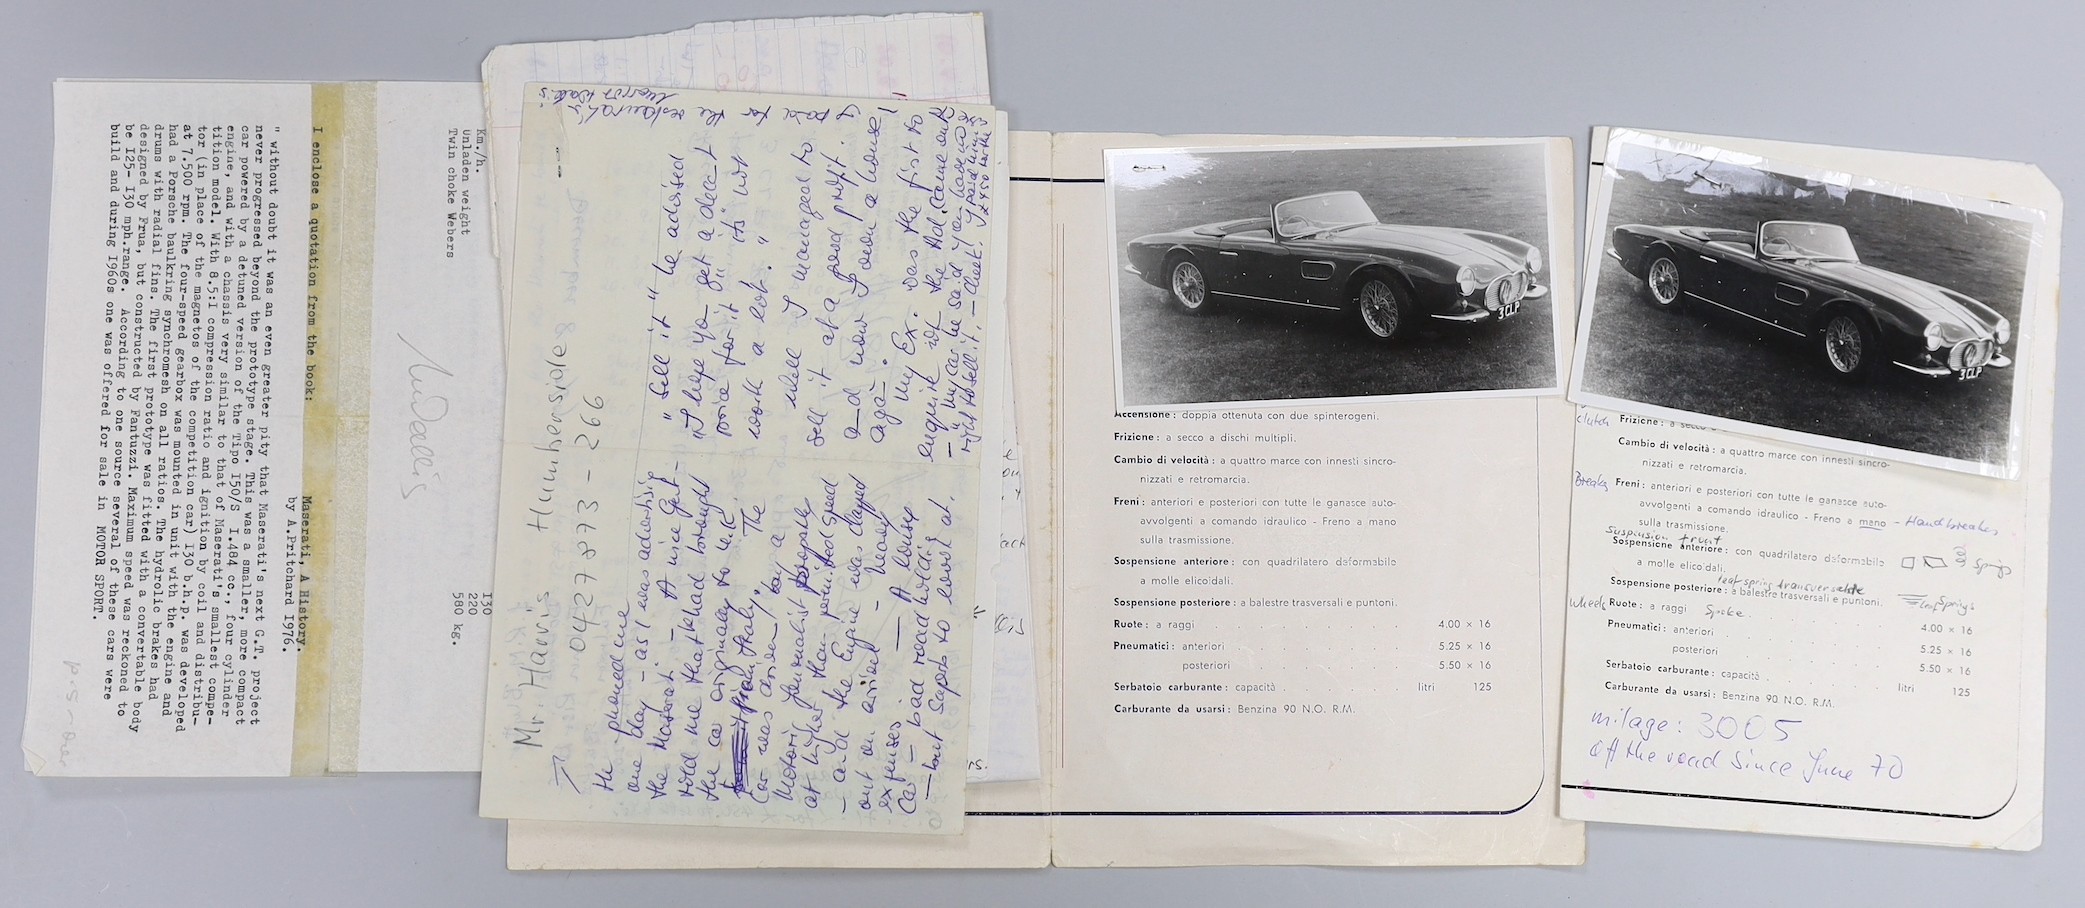 I enclose a quotation from the book:
Maserati, A History.
by A.Pritchard 1976.
" without doubt it was an even greater pity that Maserati's next G.T. project
never progressed beyond the prototype stage. This was a smaller, more compact
car powered by a detuned version of the Tipo I50/S I.484 cc., four cylinder
engine, and with a chassis very similar to that of Maserati's smallest compe-
tition model. With 8.5:I compression ratio and ignition by coil and distribu-
tor (in place of the magnetos of the competition car) I30 b.h.p. was developed
at 7.500 rpm. The four-speed gearbox was mounted in unit with the engine and
had a Porsche baulkring synchromesh on all ratios. The hydrolic brakes had
drums with radial fins. The first prototype was fitted with a convertable body
designed by Frua, but constructed by Fantuzzi. Maximum speed was reckoned to
be I25- I30 mph.range. According to one source several of these cars were
build and during I960s one was offered for sale in MOTOR SPORT.
Km./h.
Unladen weight
Twin choke Webers
I30
220
580 kg.
p.s.
Mr. Harris Humberside
0427873-266
He phoned me
one day - as I was advertising
the Maserati - A nice Gent -
told me that he had brought
the car originally to U.K.
from Italy. The
car was driven by a
Motoring Journalist
at higher than permitted speed
- and the Engine was clapped
out on arrival - Heavy
expenses. - A lousy
car - bad roadholding
- but superb to look at.
"Sell it" he advised
"I hope yo- get a decent
price for it - it's not
worth a lot."
Well I managed to
sell it at a good profit.
a-d now I own a house
again!
My Ex. was the first to
enquire if the Ad. came out
- my car he said you have no
right to sell it. - cheek! I paid him
£450 for the
& paid for the restaurating
Accensione: doppia ottenuta con due spinterogeni.
Frizione: a secco a dischi multipli.
Cambio di velocità: a quattro marce con innesti sincro-
nizzati e retromarcia.
Freni: anteriori e posteriori con tutte le ganasce auto-
avvolgenti a comando idraulico - Freno a mano
sulla trasmissione.
Sospensione anteriore: con quadrilatero deformabile
a molle elicoidali.
Sospensione posteriore: a balestre trasversali e puntoni.
Ruote: a raggi 4.00 × 16
Pneumatici: anteriori 5.25 × 16
posteriori 5.50 × 16
Serbatoio carburante: capacità litri 125
Carburante da usarsi: Benzina 90 N.O. R.M.
3CLP
3CLP
clutch Frizione: a secco
Cambio di velocità: a quattro marce con innesti sincro-
nizzati e retromarcia.
Breaks Freni: anteriori e posteriori con tutte le ganasce auto-
avvolgenti a comando idraulico - Freno a mano - Handbreakes
sulla trasmissione.
Suspension front
Sospensione anteriore: con quadrilatero deformabile Springs
a molle elicoidali.
leaf spring transversale
Sospensione posteriore: a balestre trasversali e puntoni. leaf Springs
Wheels Ruote: a raggi Spoke. 4.00 × 16
Pneumatici: anteriori 5.25 × 16
posteriori 5.50 × 16
Serbatoio carburante: capacità litri 125
Carburante da usarsi: Benzina 90 N.O. R.M.
milage: 3005
off the road since June 70